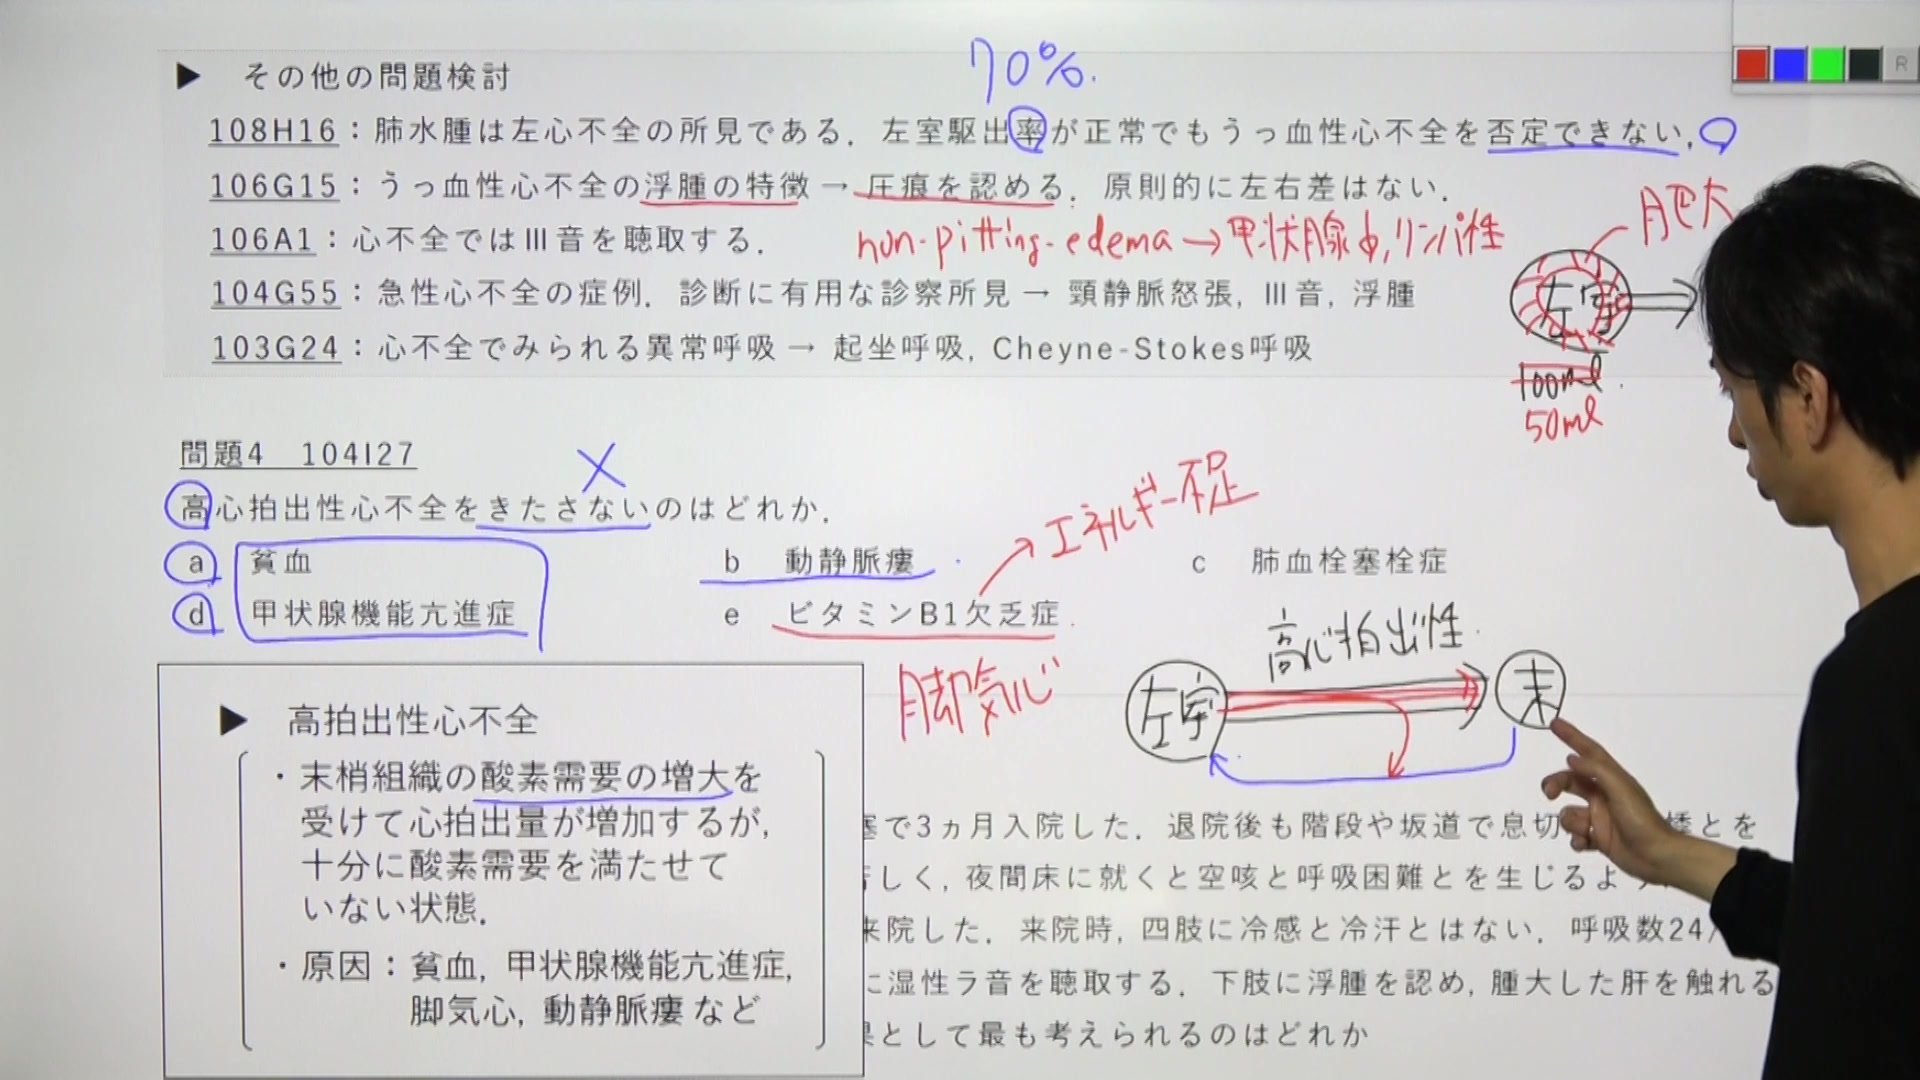 70%.
▶ その他の問題検討
108H16：肺水腫は左心不全の所見である．左室駆出率が正常でもうっ血性心不全を否定できない．
106G15：うっ血性心不全の浮腫の特徴→圧痕を認める．原則的に左右差はない．
106A1：心不全ではⅢ音を聴取する．
non-pitting-edema→甲状腺↓,リンパ性
104G55：急性心不全の症例．診断に有用な診察所見→頸静脈怒張, Ⅲ音, 浮腫
103G24：心不全でみられる異常呼吸→起坐呼吸, Cheyne-Stokes呼吸
肥大
左室
100ml
50ml
R
問題4 104I27
×
高心拍出性心不全をきたさないのはどれか．
エネルギー不足
a 貧血 b 動静脈瘻 c 肺血栓塞栓症
d 甲状腺機能亢進症 e ビタミンB1欠乏症
脚気心
高心拍出性
左室
末
▶ 高拍出性心不全
・末梢組織の酸素需要の増大を
受けて心拍出量が増加するが,
十分に酸素需要を満たせて
いない状態．
・原因：貧血, 甲状腺機能亢進症,
脚気心, 動静脈瘻 など
塞で3ヵ月入院した．退院後も階段や坂道で息切 とを
しく, 夜間床に就くと空咳と呼吸困難とを生じるよう
来院した．来院時, 四肢に冷感と冷汗とはない．呼吸数24/
に湿性ラ音を聴取する．下肢に浮腫を認め, 腫大した肝を触れる
果として最も考えられるのはどれか